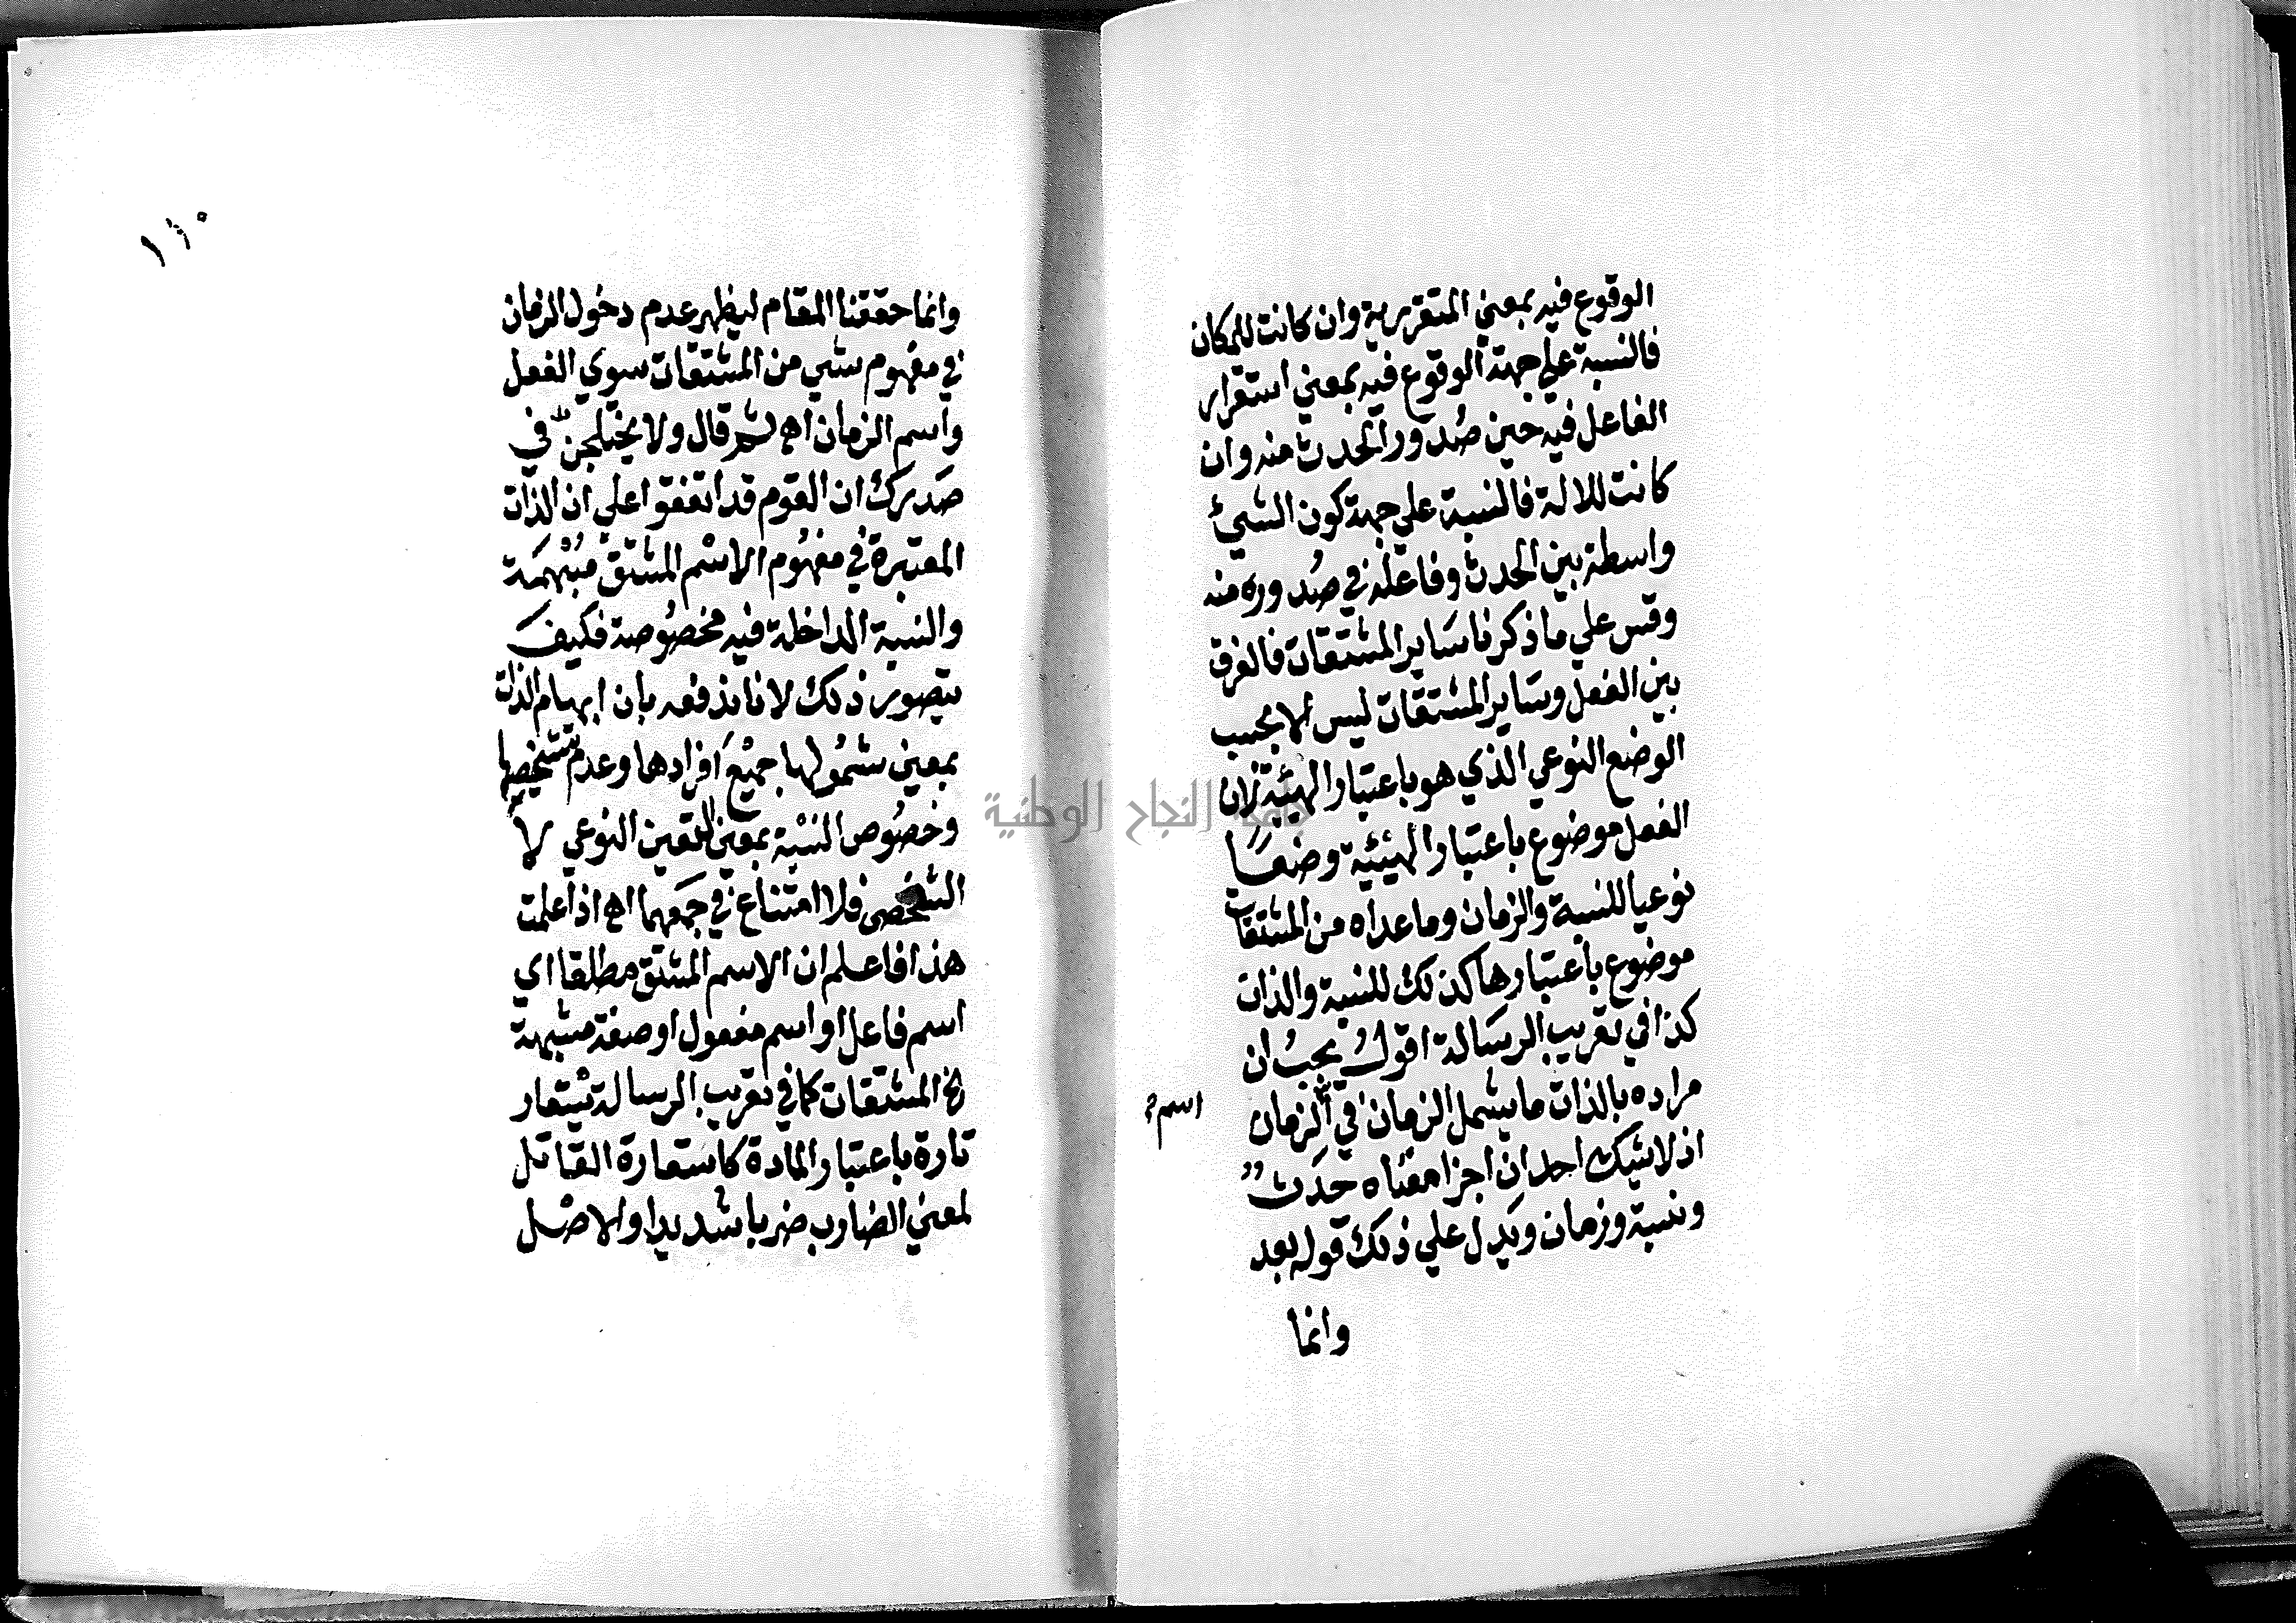 الوقوع فيه بمعني المتقررية وان كانت للمكان
فالنسبة علي جهة الوقوع فيه بمعني استقرار
الفاعل فيه حين صُدور الحدث منه وان
كانت للالة فالنسبة علي جهة كون الشيئ
واسطة بين الحدث وفاعله في صُدوره منه
وقس علي ما ذكرنا سَاير المشتقات فالفرق
بين الفعل وسَاير المشتقات ليس الا بحسب
الوضع النوعي الذي هو باعتبار الهيئة لان
الفعل موضوع باعتبار الهيئية وضعًا
نوعيا للنسبة والزمان وما عداه من المشتقات
موضوع باعتبارها كذلك للنسبة والذات
كذا في تقريب الرسَالة اقولُ يجبُ ان
مراده بالذات ما يشمل الزمان في الزمان
اسم
اذ لا يشك احد ان اجزا معناه حدَثٌ
ونسبة وزمان ويَدل علي ذلك قوله بعد
وانما
١١٠
وانما حققنا المقام ليظهر عدم دخول الزمان
في مفهوم شي من المشتقات سوي الفعل
واسم الزمان اه ثم قال ولا يختلجن في
صَدرك ان القوم قد اتفقوا علي ان الذات
المعتبرة في مفهُوم الاسْم المشتق مُبْهَمَة
والنسبة الداخلة فيه مخصُوصة فكيفَ
يتصور ذلك لانا ندفعه بان ابهام الذات
بمعني شمُولها جميْعَ افرادها وعدم تشخيصها
وخصُوص النسْبة بمعني التعين النوعي لا
الشخصي فلا امتناع في جَمعهما اه اذا علمت
هذا فاعلم ان الاسم المشتق مطلقا اي
اسم فاعل او اسم مفعول او صفة مشبهة
الخ المشتقات كما في تقريب الرسالة يستعار
تارة باعتبار المادة كاستعارة القاتل
لمعني الضارب ضربا شديدا والاصْل
جامعة النجاح الوطنية